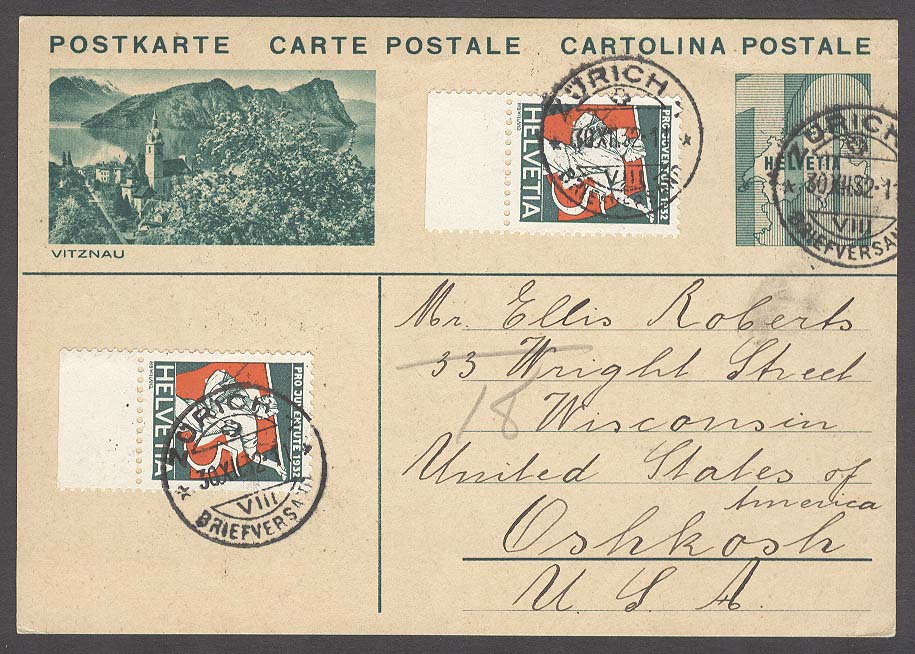 POSTKARTE CARTE POSTALE CARTOLINA POSTALE
VITZNAU
PRO JUVENTUTE 1932
HELVETIA
ZÜRICH
VIII
HELVETIA
ZÜRICH
30.XII.32
VIII
BRIEFVERSAND
Mr. Ellis Roberts
33 Wright Street
18
Wisconsin
United States of
America
Oshkosh
U. S. A.
PRO JUVENTUTE 1932
HELVETIA
ZÜRICH
VIII
BRIEFVERSAND